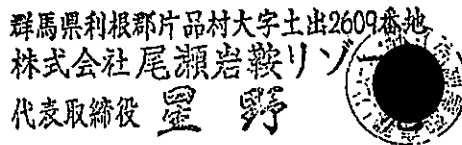 群馬県利根郡片品村大字土出2609番地
株式会社尾瀬岩鞍リゾ
代表取締役 星野